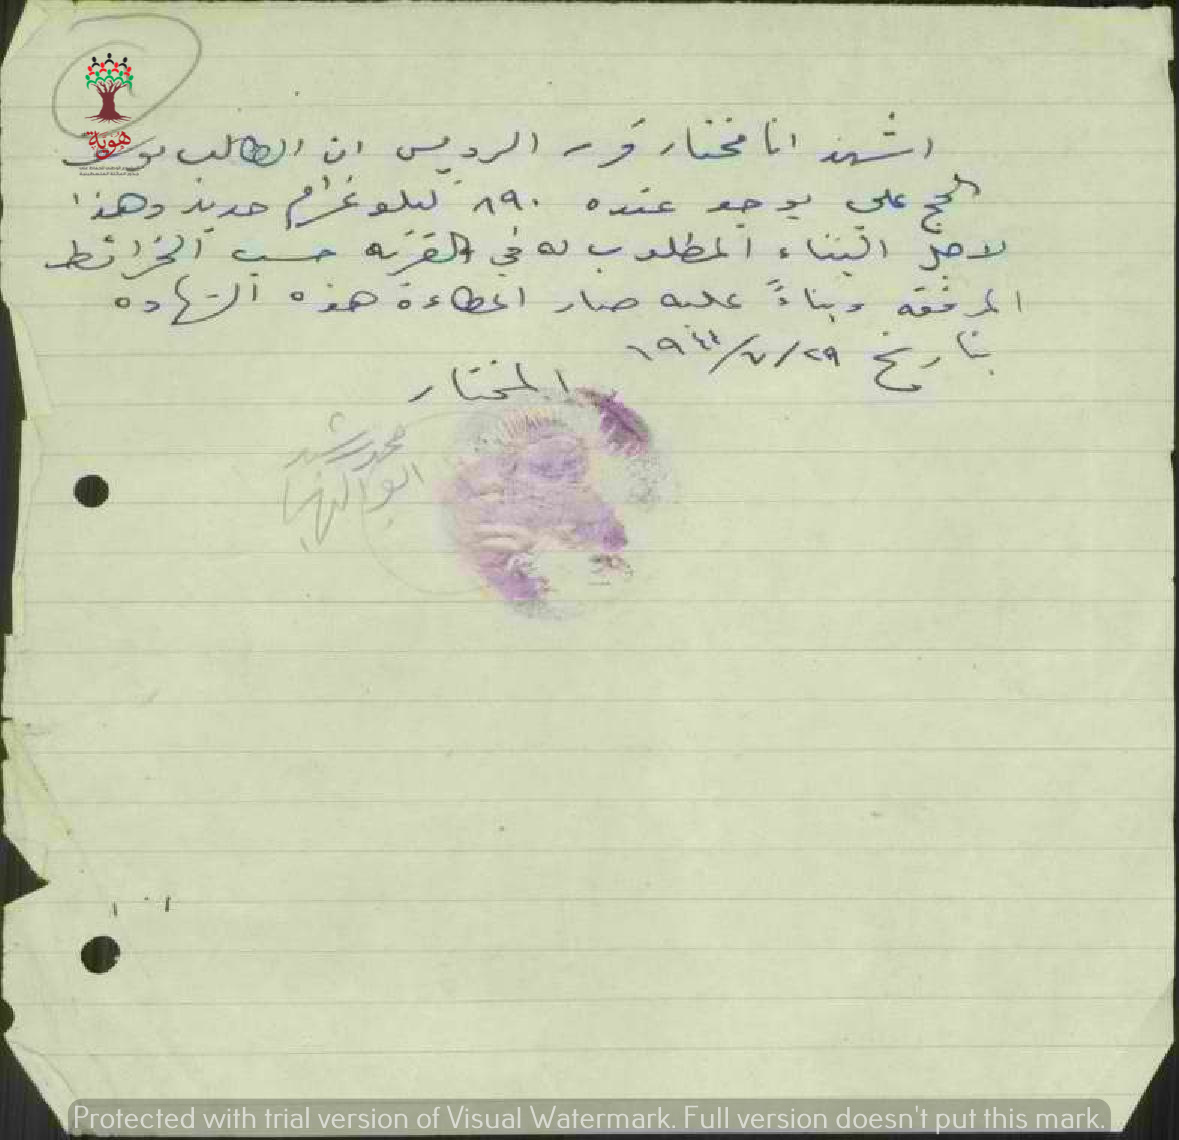 هوية
اشهد انا مختار قرية الرويس ان الطالب يوسف
الحج علي يوجد عنده ٨٩٠ كيلو غرام حديد وهذا
لاجل البناء المطلوب له في القريه حسب الخرائط
المرفقه وبناءً عليه صار اعطاءة هذه الشهاده
بتاريخ ٢٩/٧/١٩٤٤
المختار
محمد
ابو الهيجا
Protected with trial version of Visual Watermark. Full version doesn't put this mark.